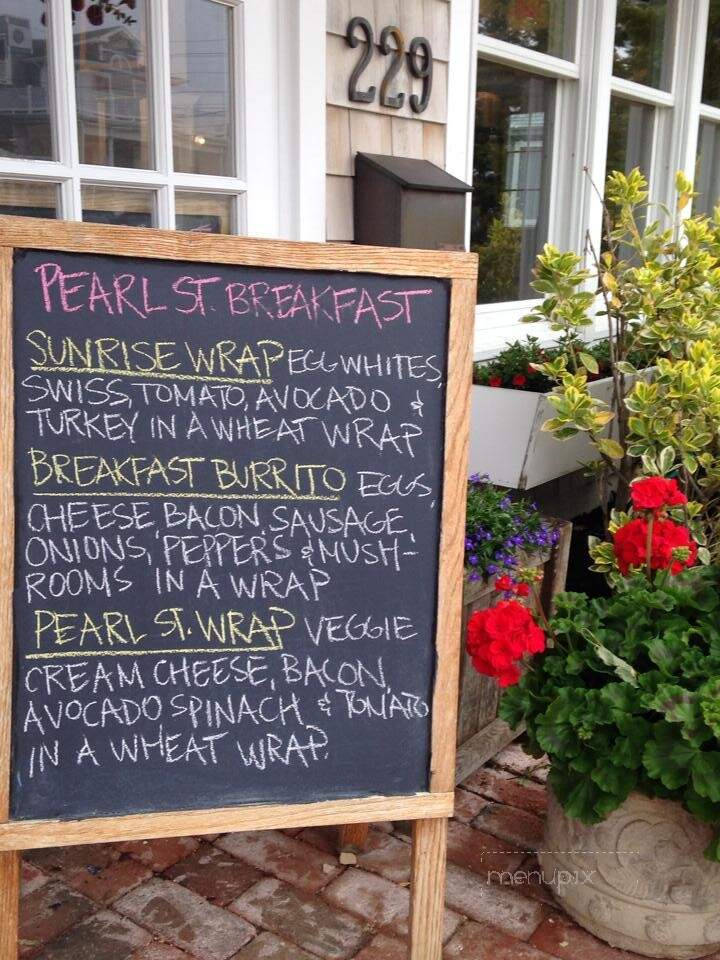 229
PEARL ST. BREAKFAST
SUNRISE WRAP EGG WHITES,
SWISS, TOMATO, AVOCADO &
TURKEY IN A WHEAT WRAP
BREAKFAST BURRITO EGGS,
CHEESE, BACON, SAUSAGE,
ONIONS, PEPPERS & MUSH-
ROOMS IN A WRAP
PEARL ST. WRAP VEGGIE
CREAM CHEESE, BACON,
AVOCADO SPINACH & TOMATO
IN A WHEAT WRAP.
menupix